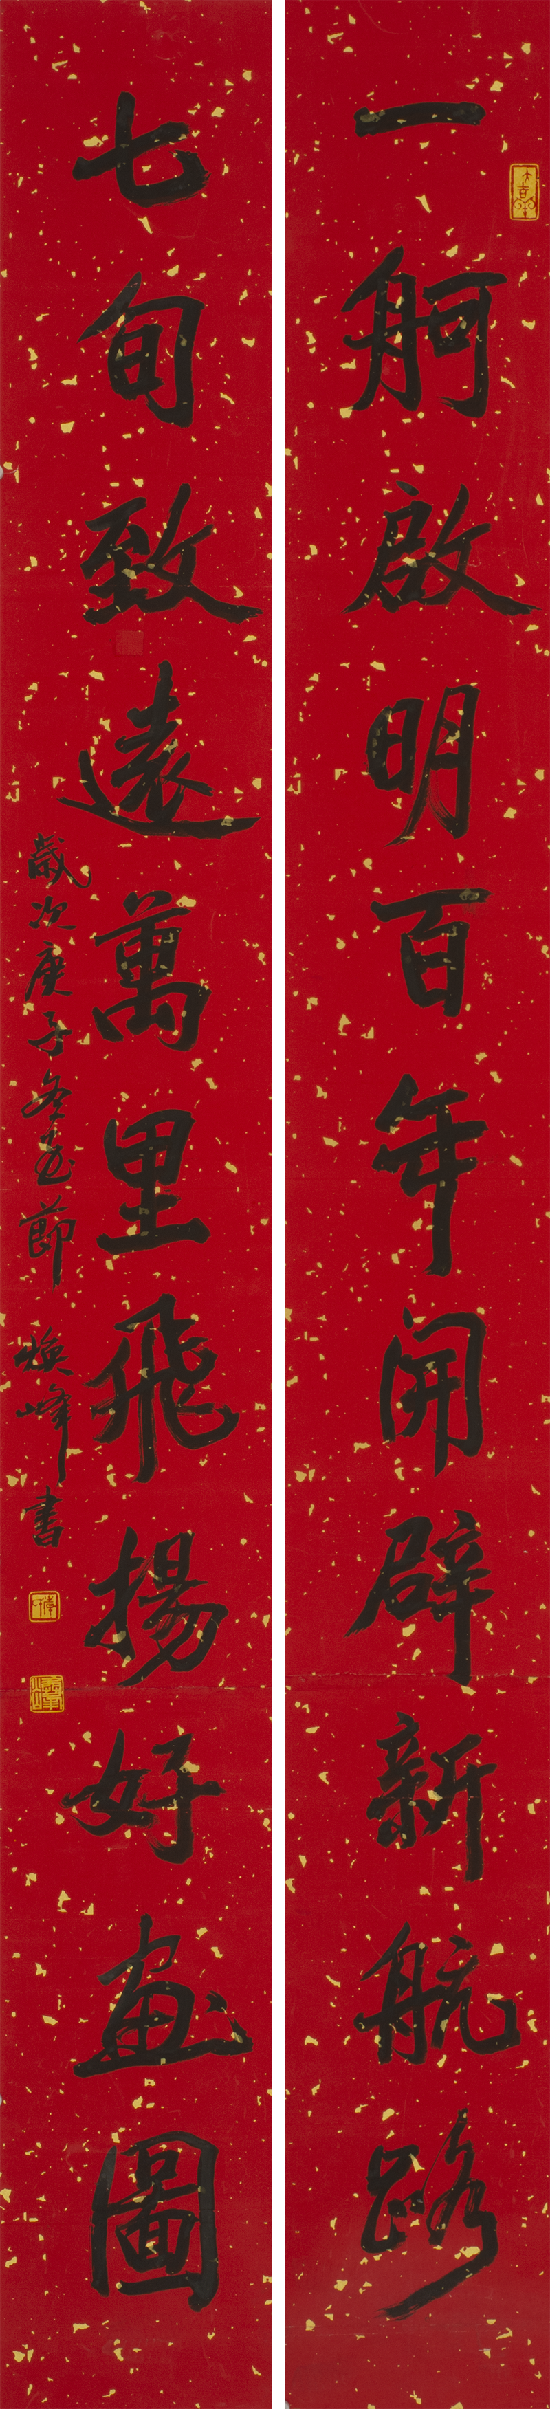 一舸啟明百年開辟新航路
七旬致遠萬里飛揚好畫圖
歲次庚子冬至節 煥峰書